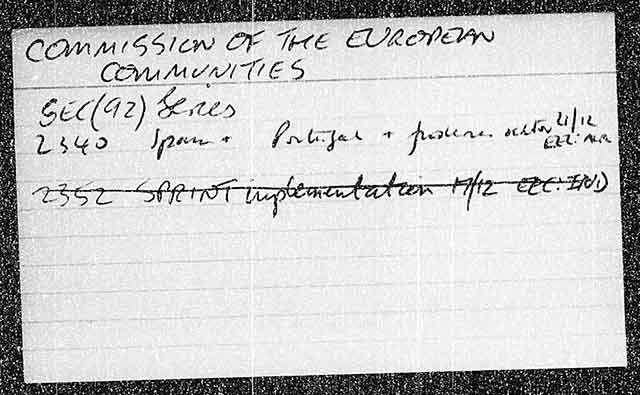 COMMISSION OF THE EUROPEAN
COMMUNITIES
SEC(92) Series
2340 Spain + Portugal + fisheries sector 21/12
EEZ: AGR
2352 SPRINT implementation 17/12 EEC: IND